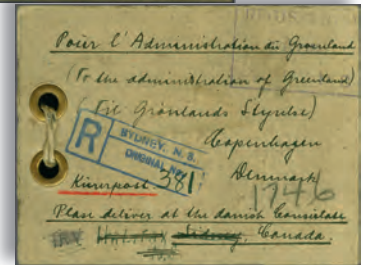 Pour l'Administration du Groenland
(To the administration of Greenland)
(Til Grönlands Styrelse)
Copenhagen
Denmark
R
SYDNEY, N. S.
ORIGINAL No.
381
Kurerpost.
1746
Please deliver at the danish Consulate
Sidney, Canada.